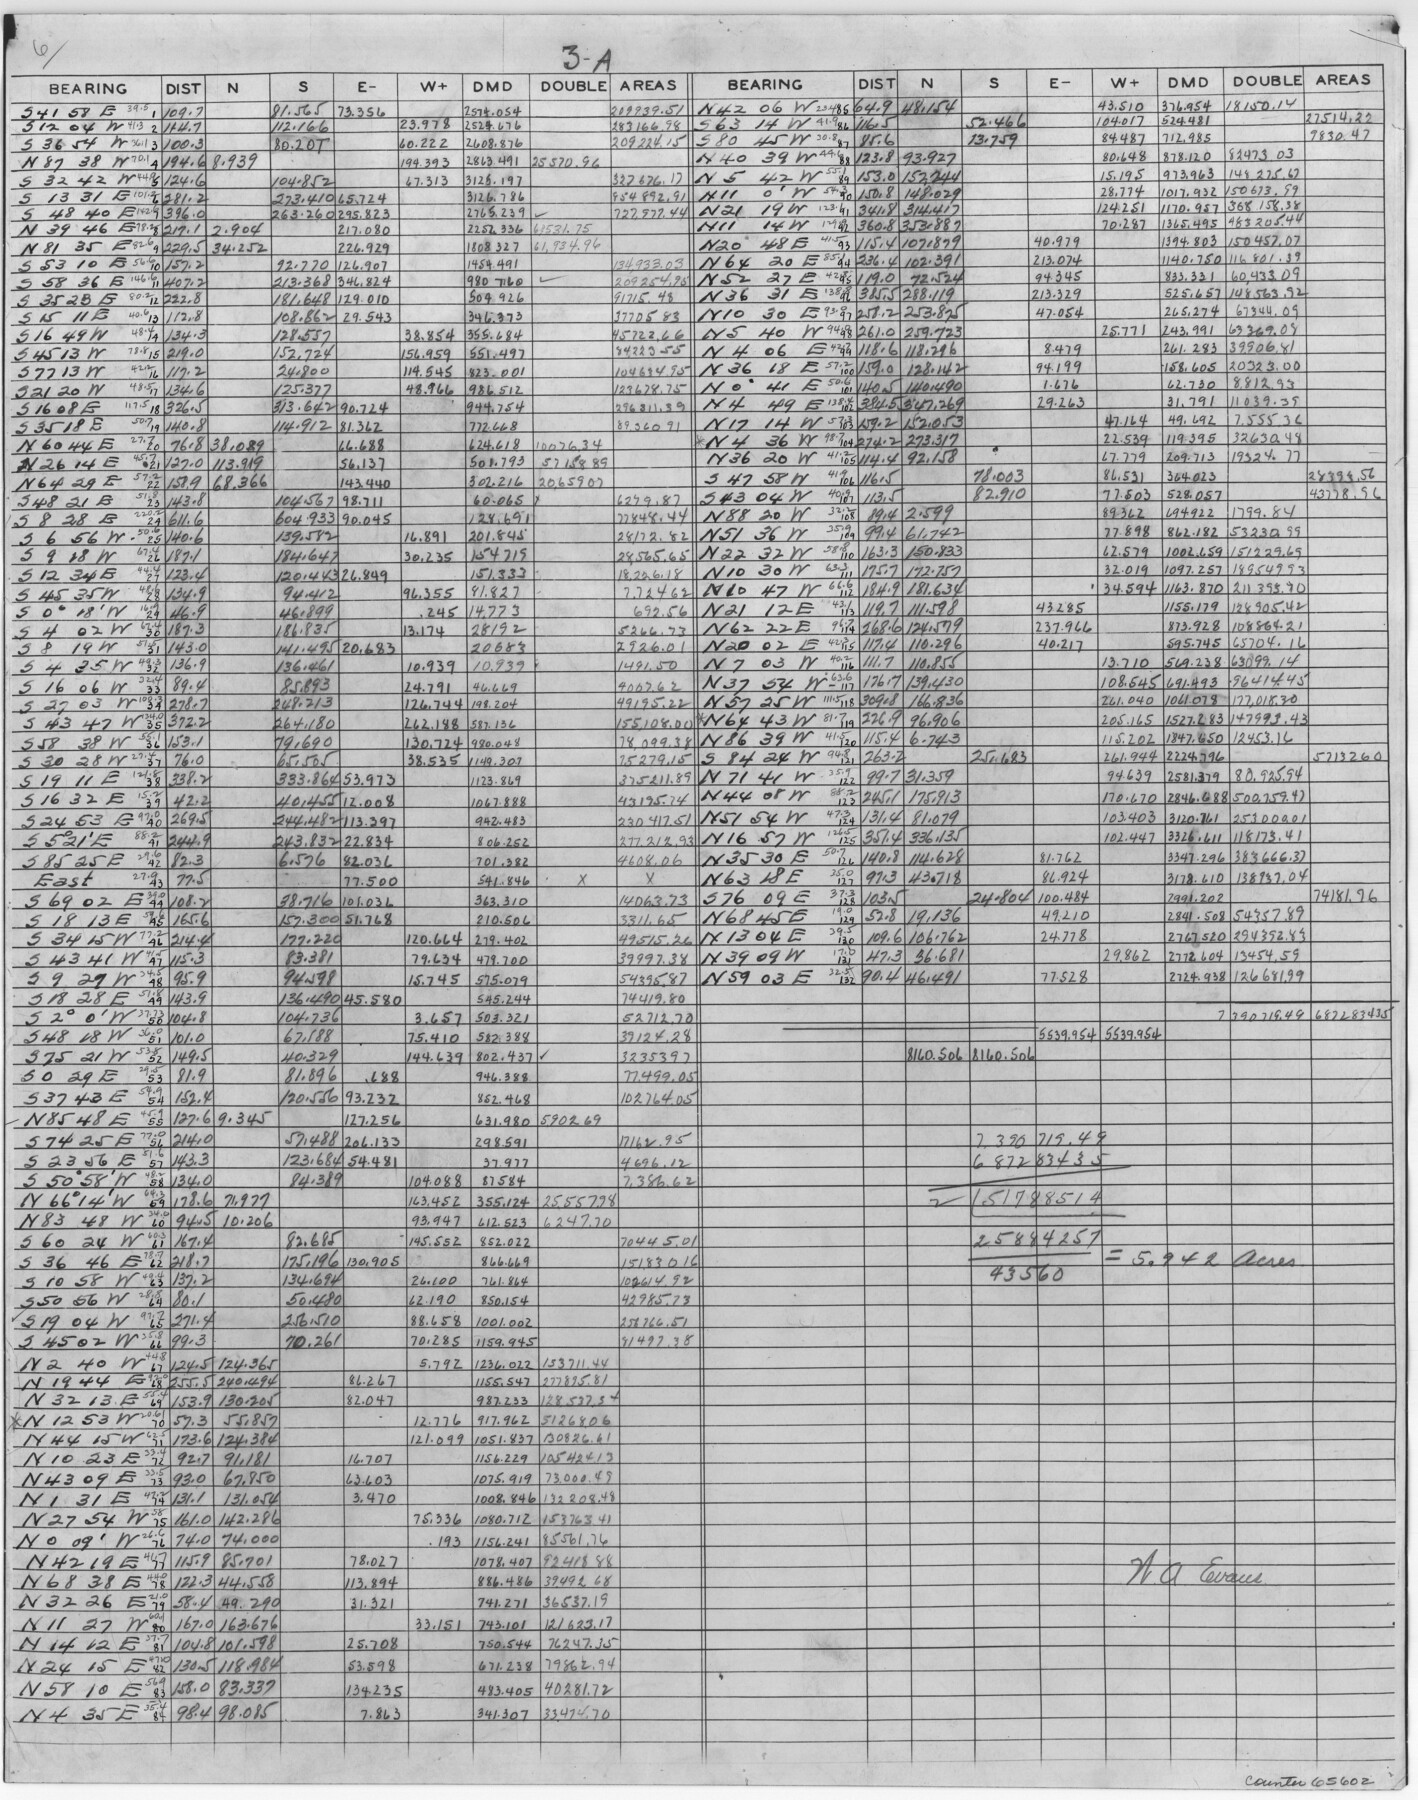 6/
3-A
BEARING DIST N S E- W+ DMD DOUBLE AREAS
S 41 58 E 39.5 1 109.7 81.565 73.356 2574.054 209939.51
S 12 04 W 41.3 2 114.7 112.166 23.978 2524.676 283166.98
S 36 54 W 36.1 3 100.3 80.207 60.222 2608.876 209224.15
N 87 38 W 70.1 4 194.6 8.939 194.393 2863.491 25570.96
S 32 42 W 44.8 5 124.6 104.852 67.313 3125.197
S 13 31 E 101.2 6 281.2 273.410 65.724 3126.786 854892.91
S 48 40 E 142.9 396.0 263.260 295.823 2765.239 727977.44
N 39 46 E 78.2 8 217.1 2.904 217.080 2252.336 6531.75
N 81 35 E 82.6 9 229.5 34.252 226.929 1808.327 61,934.96
S 53 10 E 56.6 10 157.2 92.770 126.907 1454.491 134933.03
S 58 36 E 146.6 11 407.2 213.368 346.824 980.760 209254.95
S 35 28 E 80.2 12 222.8 181.648 129.010 504.926 91715.48
S 15 11 E 40.6 13 112.8 108.862 29.543 346.373 37705.83
S 16 49 W 48.4 14 134.3 128.557 38.854 355.684 45722.66
S 45 13 W 78.8 15 219.0 152.724 156.959 551.497 84223.55
S 77 13 W 42.2 16 117.2 24.800 114.545 823.001
S 21 20 W 48.5 17 134.6 125.377 48.966 986.512 123678.75
S 16 08 E 117.5 18 326.5 313.642 90.724 944.754 296311.39
S 35 18 E 50.7 19 140.8 114.912 81.362 772.668
N 60 44 E 27.7 20 76.8 38.089 66.688 624.618 10076.34
N 26 14 E 45.7 21 127.0 113.919 56.137 501.793 57158.89
N 64 29 E 57.2 22 158.9 68.366 143.440 302.216 20,659.07
S 48 21 E 51.8 23 143.8 104.567 98.711 60.065 6279.87
S 8 28 E 220.2 24 611.6 604.933 90.045 128.691 77848.44
S 6 56 W 50.6 25 140.6 139.582 16.891 201.845 28172.82
S 9 18 W 67.4 26 187.1 184.647 30.235 154.719 28,565.65
S 12 34 E 44.4 27 123.4 120.443 26.849 151.333 18,226.18
S 45 35 W 48.6 28 134.9 94.412 96.355 81.827 7,724.62
S 0° 18' W 16.9 29 46.9 46.899 .245 14.773 692.56
S 4 02 W 67.4 30 187.3 186.835 13.174 28192 5266.73
S 8 19 W 51.5 31 143.0 141.495 20.683 20683 2926.01
S 4 35 W 49.3 32 136.9 136.461 10.939 10.939 1491.50
S 16 06 W 32.4 33 89.4 85.893 24.791 46.669 4007.62
S 27 03 W 100.3 34 278.7 248.213 126.744 198.204 49195.22
S 43 47 W 134.0 35 372.2 264.180 262.188 587.136 155,108.00
S 58 38 W 55.1 36 153.1 79.690 130.724 980.048 78,099.38
S 30 28 W 27.4 37 76.0 65.505 38.535 1149.307 75279.15
S 19 11 E 121.8 38 338.2 333.864 53.973 1123.869 375211.89
S 16 32 E 15.2 39 42.2 40.455 12.008 1067.888 43195.74
S 24 53 E 97.0 40 269.5 244.482 113.397 942.483 230417.51
S 5°21' E 88.2 41 244.9 243.832 22.834 806.252 277,212.93
S 85 25 E 29.6 42 82.3 6.576 82.036 701.382 4608.06
East 27.9 43 77.5 77.500 541.846 X X
S 69 02 E 39.0 44 108.2 38.716 101.036 363.310 14063.73
S 18 13 E 59.6 45 165.6 157.300 51.768 210.506 3311.65
S 34 15 W 77.2 46 214.4 177.220 120.664 279.402 49515.26
S 43 41 W 41.5 47 115.3 83.381 79.634 479.700 39997.38
S 9 29 W 34.5 48 95.9 94.598 15.745 575.079 54395.87
S 18 28 E 51.8 49 143.9 136.490 45.580 545.244 74419.80
S 2° 0' W 37.73 50 104.8 104.736 3.657 503.321 52712.70
S 48 18 W 36.0 51 101.0 67.188 75.410 582.388 39124.28
S 75 21 W 53.8 52 149.5 40.329 144.639 802.437 323539.7
S 0 29 E 29.5 53 81.9 81.896 .688 946.388 77,499.05
S 37 43 E 54.9 54 152.4 120.556 93.232 852.468 102764.05
N 85 48 E 45.9 55 127.6 9.345 127.256 631.980 5902.69
S 74 25 E 77.0 56 214.0 57.488 206.133 298.591 17162.95
S 23 56 E 51.6 57 143.3 123.684 54.481 37.977 4696.12
S 50°58' W 48.2 58 134.0 84.389 104.088 87584 7,386.62
N 66°14' W 64.3 59 178.6 71.977 163.452 355.124 25,557.78
N 83 48 W 34.0 60 94.5 10.206 93.947 612.523 6247.70
S 60 24 W 60.3 61 167.4 82.685 145.552 852.022 70445.01
S 36 46 E 78.7 62 218.7 175.196 130.905 866.669 151830.16
S 10 58 W 49.4 63 137.2 134.694 26.100 761.864 102614.92
S 50 56 W 28.8 64 80.1 50.480 62.190 850.154 42985.73
S 19 04 W 97.7 65 271.4 256.510 88.658 1001.002 256766.51
S 45 02 W 35.8 66 99.3 70.261 70.285 1159.945 81497.38
N 2 40 W 44.8 67 124.5 124.365 5.792 1236.022 153711.44
N 19 44 E 92.0 68 255.5 240.494 86.267 1155.547 277895.81
N 32 13 E 55.4 69 153.9 130.205 82.047 987.233
N 12 53 W 20.6 70 57.3 55.857 12.776 917.962 51268.06
N 44 15 W 62.5 71 173.6 124.384 121.099 1051.837 130826.61
N 10 23 E 33.4 72 92.7 91.181 16.707 1156.229 105424.13
N 43 09 E 33.5 73 93.0 67.850 63.603 1075.919 73,000.49
N 1 31 E 47.2 74 131.1 131.054 3.470 1008.846 132208.48
N 27 54 W 58 75 161.0 142.286 75.336 1080.712 153763.41
N 0 09' W 26.6 76 74.0 74.000 .193 1156.241 85561.76
N 42 19 E 41.7 77 115.9 85.701 78.027 1078.407 92418.88
N 68 38 E 44.0 78 122.3 44.558 113.894 886.486 39492.68
N 32 26 E 21.0 79 58.4 49.290 31.321 741.271 36537.19
N 11 27 W 60.1 80 167.0 163.676 33.151 743.101 121623.17
N 14 12 E 37.7 81 104.8 101.598 25.708 750.544 76247.35
N 24 15 E 47.0 82 130.5 118.984 53.598 671.238 79862.94
N 58 10 E 56.9 83 158.0 83.337 134.235 483.405 40281.72
N 4 35 E 35.4 84 98.4 98.085 7.863 341.307 33474.70
BEARING DIST N S E- W+ DMD DOUBLE AREAS
N 42 06 W 23.4 85 64.9 48.154 43.510 376.954 18150.14
S 63 14 W 41.9 86 116.5 52.466 104.017 524.481 27514.22
S 80 45 W 30.8 87 85.6 13.759 84.487 712.985 9830.47
N 40 39 W 44.6 88 123.8 93.927 80.648 878.120 82473.03
N 5 42 W 55.1 89 153.0 152.244 15.195 973.963 148,275.67
N 11 0' W 54.3 90 150.8 148.029 28.774 1017.932 150673.99
N 21 19 W 123.1 91 341.8 314.417 124.251 1170.957 368158.38
N 11 14 W 129.9 92 360.8 353.887 70.287 1365.495 483205.44
N 20 48 E 41.5 93 115.4 107.879 40.979 1394.803 150457.07
N 64 20 E 85.1 94 236.4 102.391 213.074 1140.750 116801.39
N 52 27 E 42.8 95 119.0 72.524 94.345 833.331 60,433.09
N 36 31 E 138.8 96 385.5 288.119 213.329 525.657 148,563.92
N 10 30 E 93.0 97 258.2 253.875 47.054 265.274 67344.09
N 5 40 W 94.0 98 261.0 259.723 25.771 243.991 63369.08
N 4 06 E 42.7 99 118.6 118.296 8.479 261.283 39906.81
N 36 18 E 57.2 100 159.0 128.142 94.199 158.605 20323.00
N 0° 41 E 50.6 101 140.5 140.490 1.676 62.730 8,812.93
N 4 49 E 138.4 102 384.5 347.269 29.263 31.791 11039.39
N 17 14 W 57.3 103 159.2 152.053 47.164 49.692 7,555.36
N 4 36 W 98.7 104 274.2 273.317 22.539 119.395 32630.48
N 36 20 W 41.2 105 114.4 92.158 67.779 209.713 19324.77
S 47 58 W 41.9 106 116.5 78.003 86.531 364.023 28394.56
S 43 04 W 40.9 107 113.5 82.910 77.503 528.057 43778.96
N 88 20 W 32.2 108 89.4 2.599 89.362 694922 1799.84
N 51 36 W 35.9 109 99.4 61.742 77.898 862.182 53230.99
N 22 32 W 58.8 110 163.3 150.833 62.579 1002.659 151229.69
N 10 30 W 63.3 111 175.7 172.757 32.019 1097.257 189549.93
N 10 47 W 66.6 112 184.9 181.634 34.594 1163.870 211395.70
N 21 12 E 43.1 113 119.7 111.598 43.285 1155.179 128905.42
N 62 22 E 96.7 114 268.6 124.579 237.966 873.928 108864.21
N 20 02 E 42.3 115 117.4 110.296 40.217 595.745 65704.16
N 7 03 W 40.2 116 111.7 110.855 13.710 569.238 63099.14
N 37 54 W 63.6 117 176.7 139.430 108.545 691.493 96414.45
N 57 25 W 111.5 118 309.8 166.836 261.040 1061.078 177,018.30
N 64 43 W 81.7 119 226.9 96.906 205.165 1527.283 147993.43
N 86 39 W 41.5 120 115.4 6.743 115.202 1847.650 12453.16
S 84 24 W 94.8 121 263.2 251.683 261.944 2224.796 57132.60
N 71 41 W 35.9 122 99.7 31.359 94.639 2581.379 80,925.94
N 44 08 W 88.2 123 245.1 175.913 170.670 2846.688 500,759.47
N 51 54 W 47.3 124 131.4 81.079 103.403 3120.761 253000.01
N 16 57 W 126.5 125 351.4 336.135 102.447 3326.611 118173.41
N 35 30 E 50.7 126 140.8 114.628 81.762 3347.296 383666.37
N 63 18 E 35.0 127 97.3 43.718 86.924 3178.610 138937.04
S 76 09 E 37.3 128 103.5 24.804 100.484 2991.202 74181.76
N 68 45 E 19.0 129 52.8 19.136 49.210 2841.508 54357.89
N 13 04 E 39.5 130 109.6 106.762 24.778 2767.520 294352.83
N 39 09 W 17.0 131 47.3 36.681 29.862 2772.604 13454.59
N 59 03 E 32.5 132 90.4 46.491 77.528 2724.938 126681.99
7 390719.49 6872834.35
5539.954 5539.954
8160.506 8160.506
7 390 719.49
6 872 834.35
2 517885.14
258842.57
43560 = 5.942 Acres.
W A Evans
Counter 65602